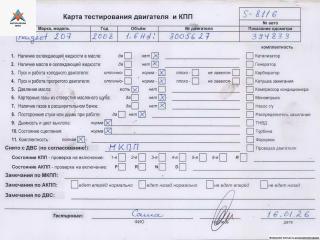 Карта тестирования двигателя и КПП
S-8116
№ авто
Марка, модель Год Объём № двигателя Показание одометра
Peugeot 207 2008 1.6 HDi 3005627 394833
комплектность
1. Наличие охлаждающей жидкости в масле: да нет Катализатор
2. Наличие масла в охлаждающей жидкости: да нет Генератор
3. Пуск и работа холодного двигателя: отлично норма плохо не завелся Карбюратор
4. Пуск и работа прогретого двигателя: отлично норма плохо не завелся Катушка зажигания
5. Давление масла: есть нет Компрессор кондиционера
6. Картерные газы из отверстия масляного щупа: да нет Моновпрыск
7. Наличие газов в расширительном бачке: да нет Насос г/у
8. Посторонние стуки или дрожь при работе: да нет Распределитель
9. Дымность и цвет выхлопа: норма ТНВД
10. Состояние сцепления: норма Турбина
11. Комплектность: полная Форсунки
Снято с ДВС (по согласованию): МКПП Проверка двигателя
Состояние КПП - проверка на включение: 1-я 2-я 3-я 4-я 5-я R
Состояние АКПП - проверка на включение: P R N D
Замечания по МКПП:
Замечания по АКПП: едет вперёд нормально едет назад нормально не едет вперед не едет назад
Замечания по ДВС:
Тестировал: Саша 16.01.26
ФИО подпись дата